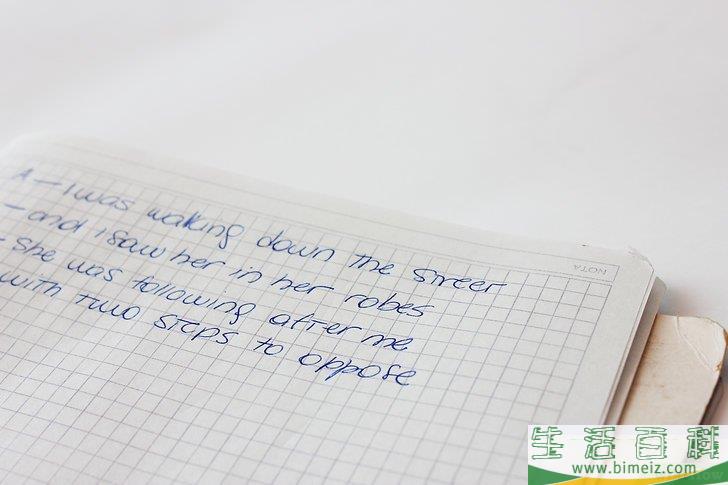 A – I was walking down the street
– and I saw her in her robes
– she was following after me
with two steps to oppose
NOTA
生活百科
www.bimeiz.com